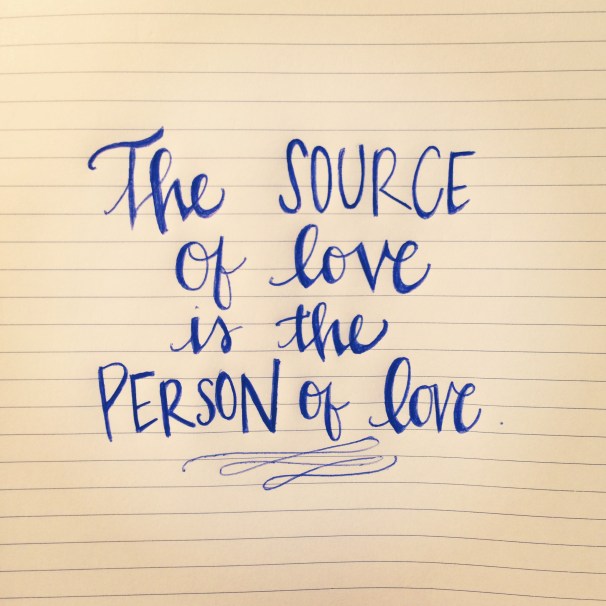 The SOURCE
of love
is the
PERSON of love.